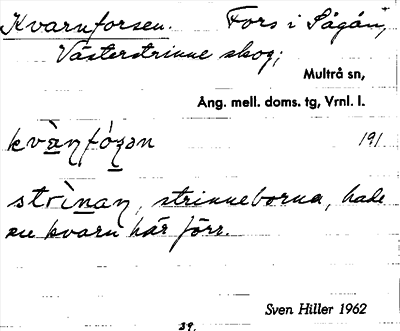 Kvarnforsen. Fors i Sågån,
Västerstrinne skog;
Multrå sn,
Ång. mell. doms. tg, Vrnl. l.
191
strinneborna, hade
en kvarn här förr.
Sven Hiller 1962
39.